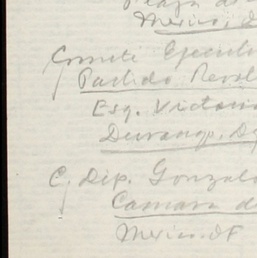 Plaza de
Mexico, D
Comite Ejecuti
Partido Revol
Esq. Victoria
Durango, Dg
C. Dip. Gonzalo
Camara de
Mexico. DF